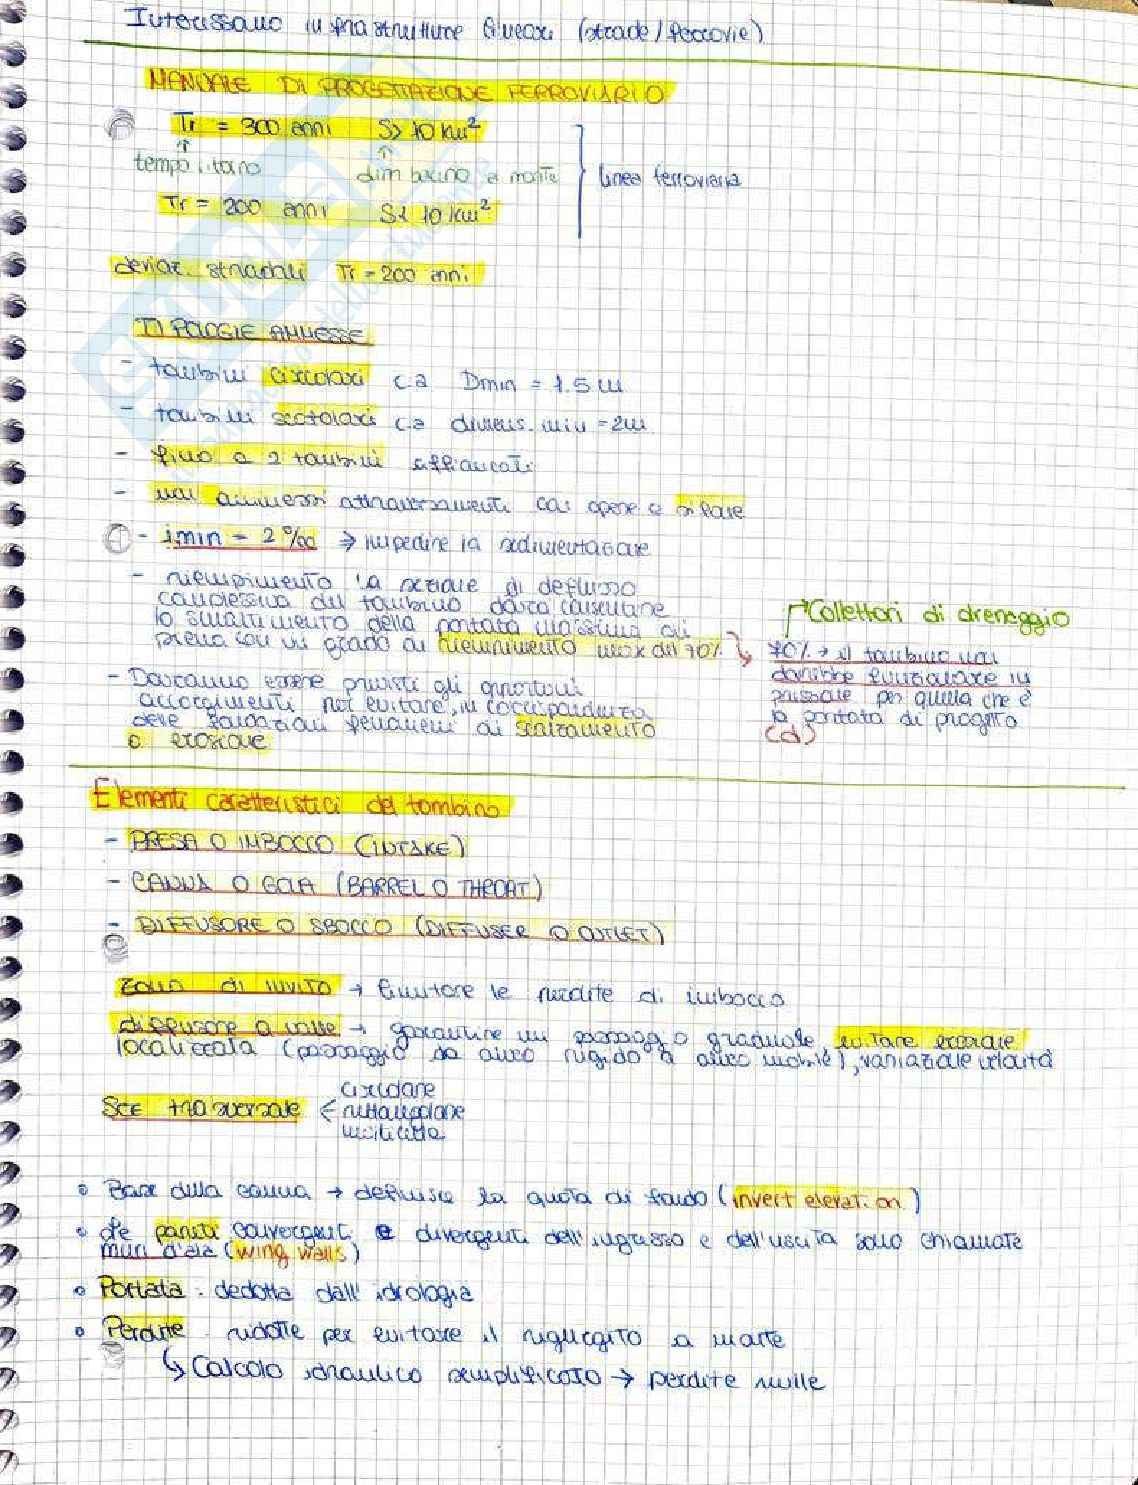 Interessano infrastrutture lineari (strade/ferrovie)
MANUALE DI PROGETTAZIONE FERROVIARIO
Tr = 300 anni S> 10 km²
tempo ritorno dim bacino a monte
linea ferroviaria
Tr = 200 anni S< 10 km²
deviaz. stradali Tr = 200 anni
TIPOLOGIE AMMESSE
- tombini circolari c.a Dmin = 1.5 m
- tombini scatolari c.a dimens. min = 2m
- fino a 2 tombini affiancati
- non ammessi attraversamenti con opere a sifone
- imin = 2‰ ⇒ impedire la sedimentazione
- riempimento la sezione di deflusso
complessiva del tombino dovrà consentire
lo smaltimento della portata massima di
piena con un grado di riempimento max del 70%
Collettori di drenaggio
70% → il tombino non
dovrebbe funzionare in
pressione per quella che è
la portata di progetto
(d)
- Dovranno essere previsti gli opportuni
accorgimenti per evitare, in corrispondenza
delle fondazioni fenomeni di scalzamento
o erosione
Elementi caratteristici del tombino
- PRESA O IMBOCCO (INTAKE)
- CANNA O GOLA (BARREL O THROAT)
- DIFFUSORE O SBOCCO (DIFFUSER O OUTLET)
Zona di invito → limitare le perdite di imbocco
diffusore a valle → garantire un passaggio graduale, evitare erosione
localizzata (passaggio da alveo rigido a alveo mobile), variazione velocità
Sez trasversale < circolare
rettangolare
policentrica
• Base della canna → definisce la quota di fondo (invert elevation)
• Le pareti convergenti e divergenti dell'ingresso e dell'uscita sono chiamate
muri d'ala (wing walls)
• Portata : dedotta dall'idrologia
• Perdite : ridotte per evitare il rigurgito a monte
↳ Calcolo idraulico semplificato → perdite nulle